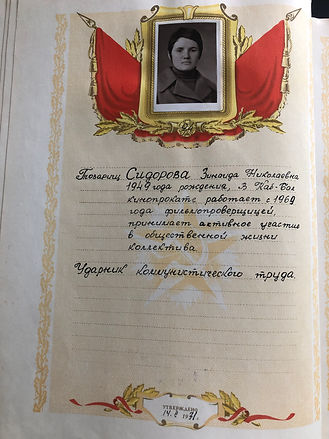 Товарищ Сидорова Зиноида Николаевна
1949 года рождения, В Каб-Бал
кинопрокате работает с 1969
года фильмопроверщицей,
принимает активное участие
в общественной жизни
коллектива.
Ударник коммунистического труда.
УТВЕРЖДЕНО
1971